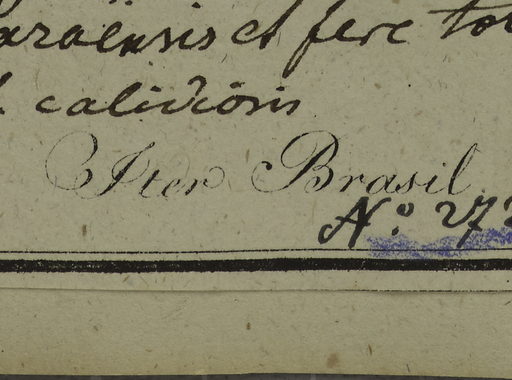 araënsis et fere to
calidioris
Iter Brasil.
N.º 272